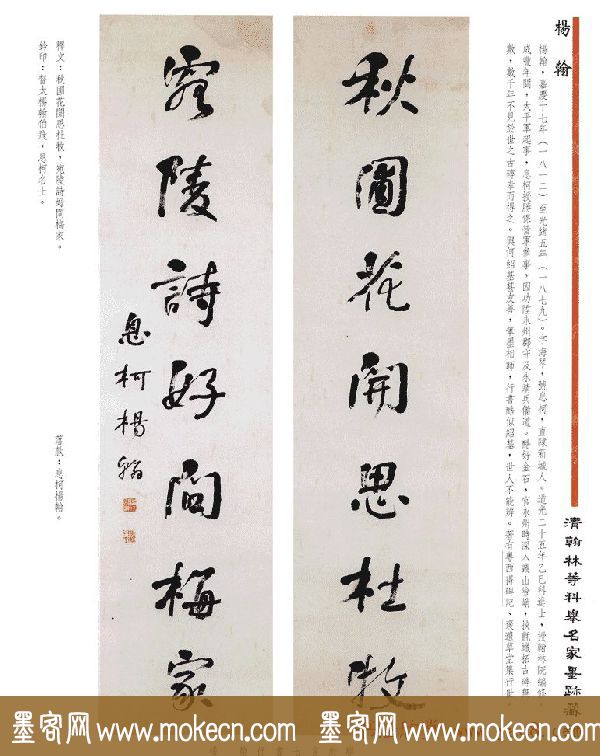 楊翰
楊翰，嘉慶一七年（一八一二）至光緒五年（一八七九）。字海琴，號息柯，直隸新城人。道光二十五年乙巳科進士，授翰林院編修。
咸豐年間，太平軍起事，息柯
因功陞永州郡守及永靖兵備道。酷好金石，官永州時深入叢山
數千年不見於世之古碑幸而得之。與何紹基甚友善，筆墨相聯，行書酷似紹基，世人不能辨。著有粵西得碑記、
清翰林等科舉名家墨跡
秋圃花開思杜牧
宛陵詩好問梅家
息柯楊翰
釋文：秋圃花開思杜牧，宛陵詩好問梅家。
鈐印：督太楊翰伯飛，息柯之士。
落款：息柯楊翰。
墨客网 www.mokecn.com 墨客网 www.mokecn.com